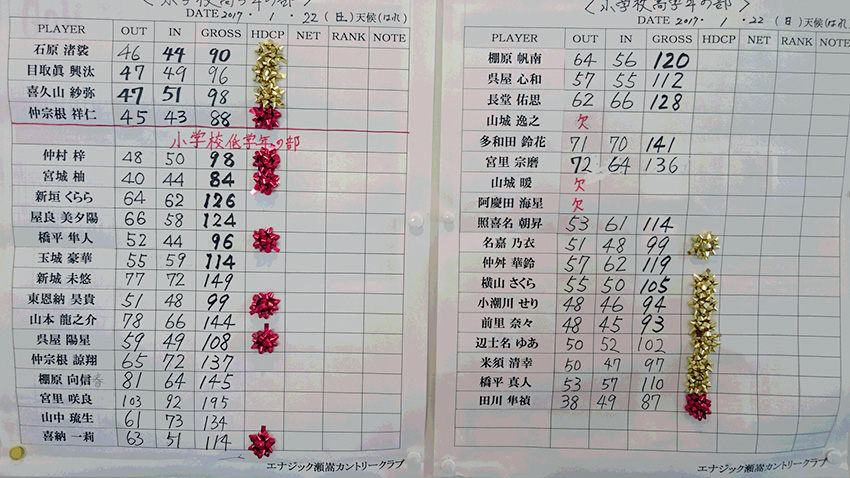 〈小学校高学年の部〉
DATE 2017・1・22(日)天候(はれ)
PLAYER OUT IN GROSS HDCP NET RANK NOTE
石原 渚裟 46 44 90
目取眞 興汰 47 49 96
喜久山 紗弥 47 51 98
仲宗根 祥仁 45 43 88
小学校低学年の部
仲村 梓 48 50 98
宮城 柚 40 44 84
新垣 くらら 64 62 126
屋良 美夕陽 66 58 124
橋平 隼人 52 44 96
玉城 豪華 55 59 114
新城 未悠 77 72 149
東恩納 昊貴 51 48 99
山本 龍之介 78 66 144
呉屋 陽星 59 49 108
仲宗根 諒翔 65 72 137
棚原 向信 81 64 145
宮里 咲良 103 92 195
山中 琉生 61 73 134
喜納 一莉 63 51 114
エナジック瀬嵩カントリークラブ
〈小学校高学年の部〉
DATE 2017・1・22(日)天候(はれ)
PLAYER OUT IN GROSS HDCP NET RANK NOTE
棚原 帆南 64 56 120
呉屋 心和 57 55 112
長堂 佑思 62 66 128
山城 逸之 欠
多和田 鈴花 71 70 141
宮里 宗磨 72 64 136
山城 暖 欠
阿慶田 海星 欠
照喜名 朝昇 53 61 114
名嘉 乃衣 51 48 99
仲舛 華鈴 57 62 119
横山 さくら 55 50 105
小潮川 せり 48 46 94
前里 奈々 48 45 93
辺士名 ゆあ 50 52 102
米須 清幸 50 47 97
橋平 真人 53 57 110
田川 隼禎 38 49 87
エナジック瀬嵩カントリークラブ